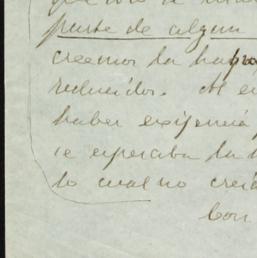 parte de algun
creemos la hapo
reducidos. Al en
haber exigencia
se esperaba la
lo cual no creí
Con